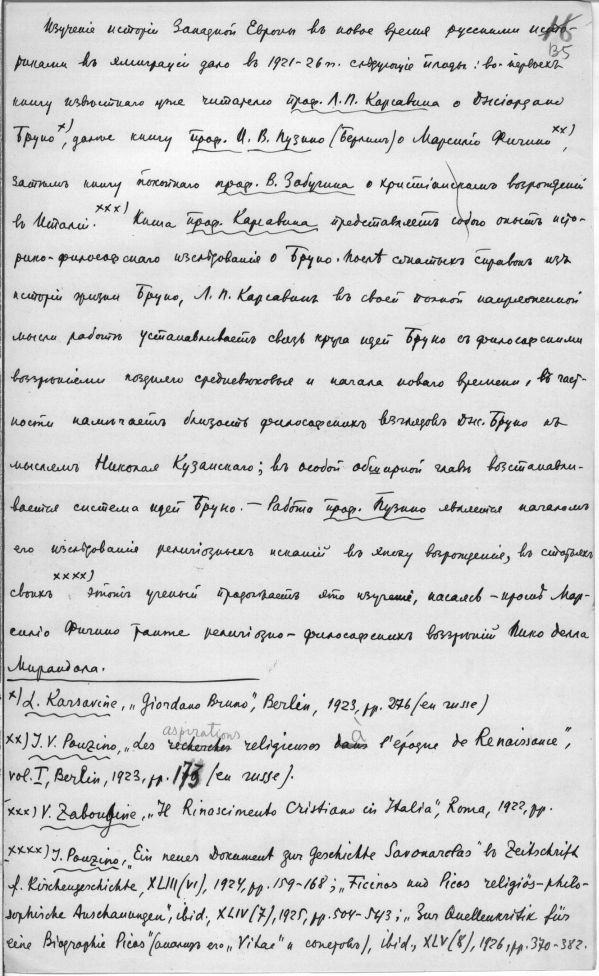 16
B5
Изученіе исторіи Западной Европы въ новое время русскими исто-
риками въ эмиграціи дало въ 1921-26 гг. следующіе плоды: во-первыхъ
книгу извѣстнаго уже читателю проф. Л.П. Карсавина о Джіордано
Бруно x), далее книгу проф. И. В. Пузино (Берлинъ) о Марсиліо Фичино xx),
затѣмъ книгу покойнаго проф. В. Забугина о христіанскомъ возрожденіи
въ Италіи. xxx) Книга проф. Карсавина представляетъ собою опытъ исто-
рико-философскаго изслѣдованія о Бруно. Послѣ сжатыхъ справокъ изъ
исторіи жизни Бруно, Л. П. Карсавинъ въ своей полной напряженной
мысли работѣ устанавливаетъ связь круга идей Бруно съ философскими
воззрѣніями поздняго средневѣковья и начала новаго времени, въ част-
ности намѣчаетъ близость философскихъ взглядовъ Дж. Бруно къ
мыслямъ Николая Кузанскаго; въ особой обширной главѣ возстанавли-
вается система идей Бруно. — Работа проф. Пузино является началомъ
его изслѣдованія религіозныхъ исканій въ эпоху возрожденія, въ статьяхъ
своихъ xxxx) этотъ ученый продолжаетъ это изученіе, касаясь – кромѣ Мар-
силіо Фичино также религіозно-философскихъ воззрѣній Пико делла
Мирандола.
x) L. Karsavine, „Giordano Bruno", Berlin, 1923, pp. 276 (en russe)
xx) J. V. Pouzino, „Les recherches aspirations religieuses dans à l'époque de Renaissance",
vol. I, Berlin, 1923, pp. 173 (en russe).
xxx) V. Zabougine, „Il Rinascimento Cristiano in Italia", Roma, 1922, pp.
xxxx) J. Pouzino, „Ein neues Dokument zur Geschichte Savonarolas" въ Zeitschrift
f. Kirchengeschichte, XLIII (VI), 1924, pp. 159-168; „Ficinos und Picos religiös-philo-
sophische Anschauungen", ibid., XLIV (7), 1925, pp. 504-543; „Zur Quellenkritik für
eine Biographie Picos" (анализъ его „Vitae" и), ibid., XLV (8), 1926, pp. 370-382.